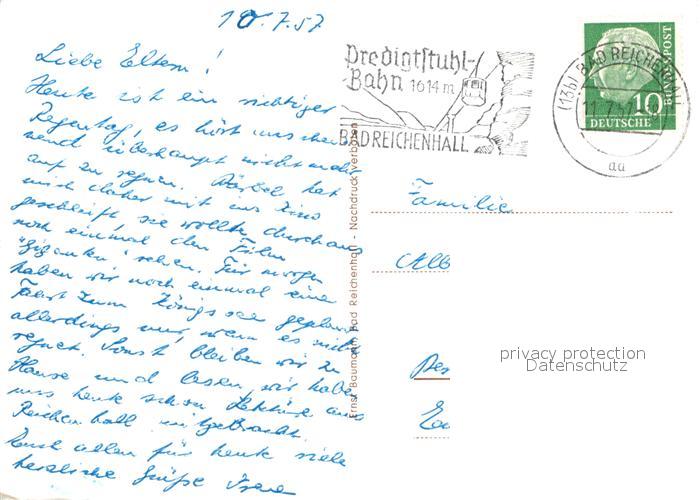 10.7.57
Liebe Eltern!
Heute ist ein richtiger
Regentag, es hört anscheinend
überhaupt nicht mehr
auf zu regnen. Bärbel hat
mich daher mit ins Kino
geschleift, sie wollte durchaus
noch einmal den Film
"Giganten" sehen. Für morgen
haben wir noch einmal eine
Fahrt zum Königssee geplant
allerdings nur, wenn es nicht
regnet. Sonst bleiben wir zu
Hause und lesen, wir haben
uns heute schon Lektüre aus
Reichenhall mitgebracht.
Euch allen für heute viele
herzliche Grüße
Predigtstuhl-
Bahn 1614 m
BAD REICHENHALL
(13b) BAD REICHENHALL
11.7.57
aa
10
DEUTSCHE
BUNDESPOST
Ernst Baumann Bad Reichenhall - Nachdruck verboten
Familie
Alb
privacy protection
Datenschutz